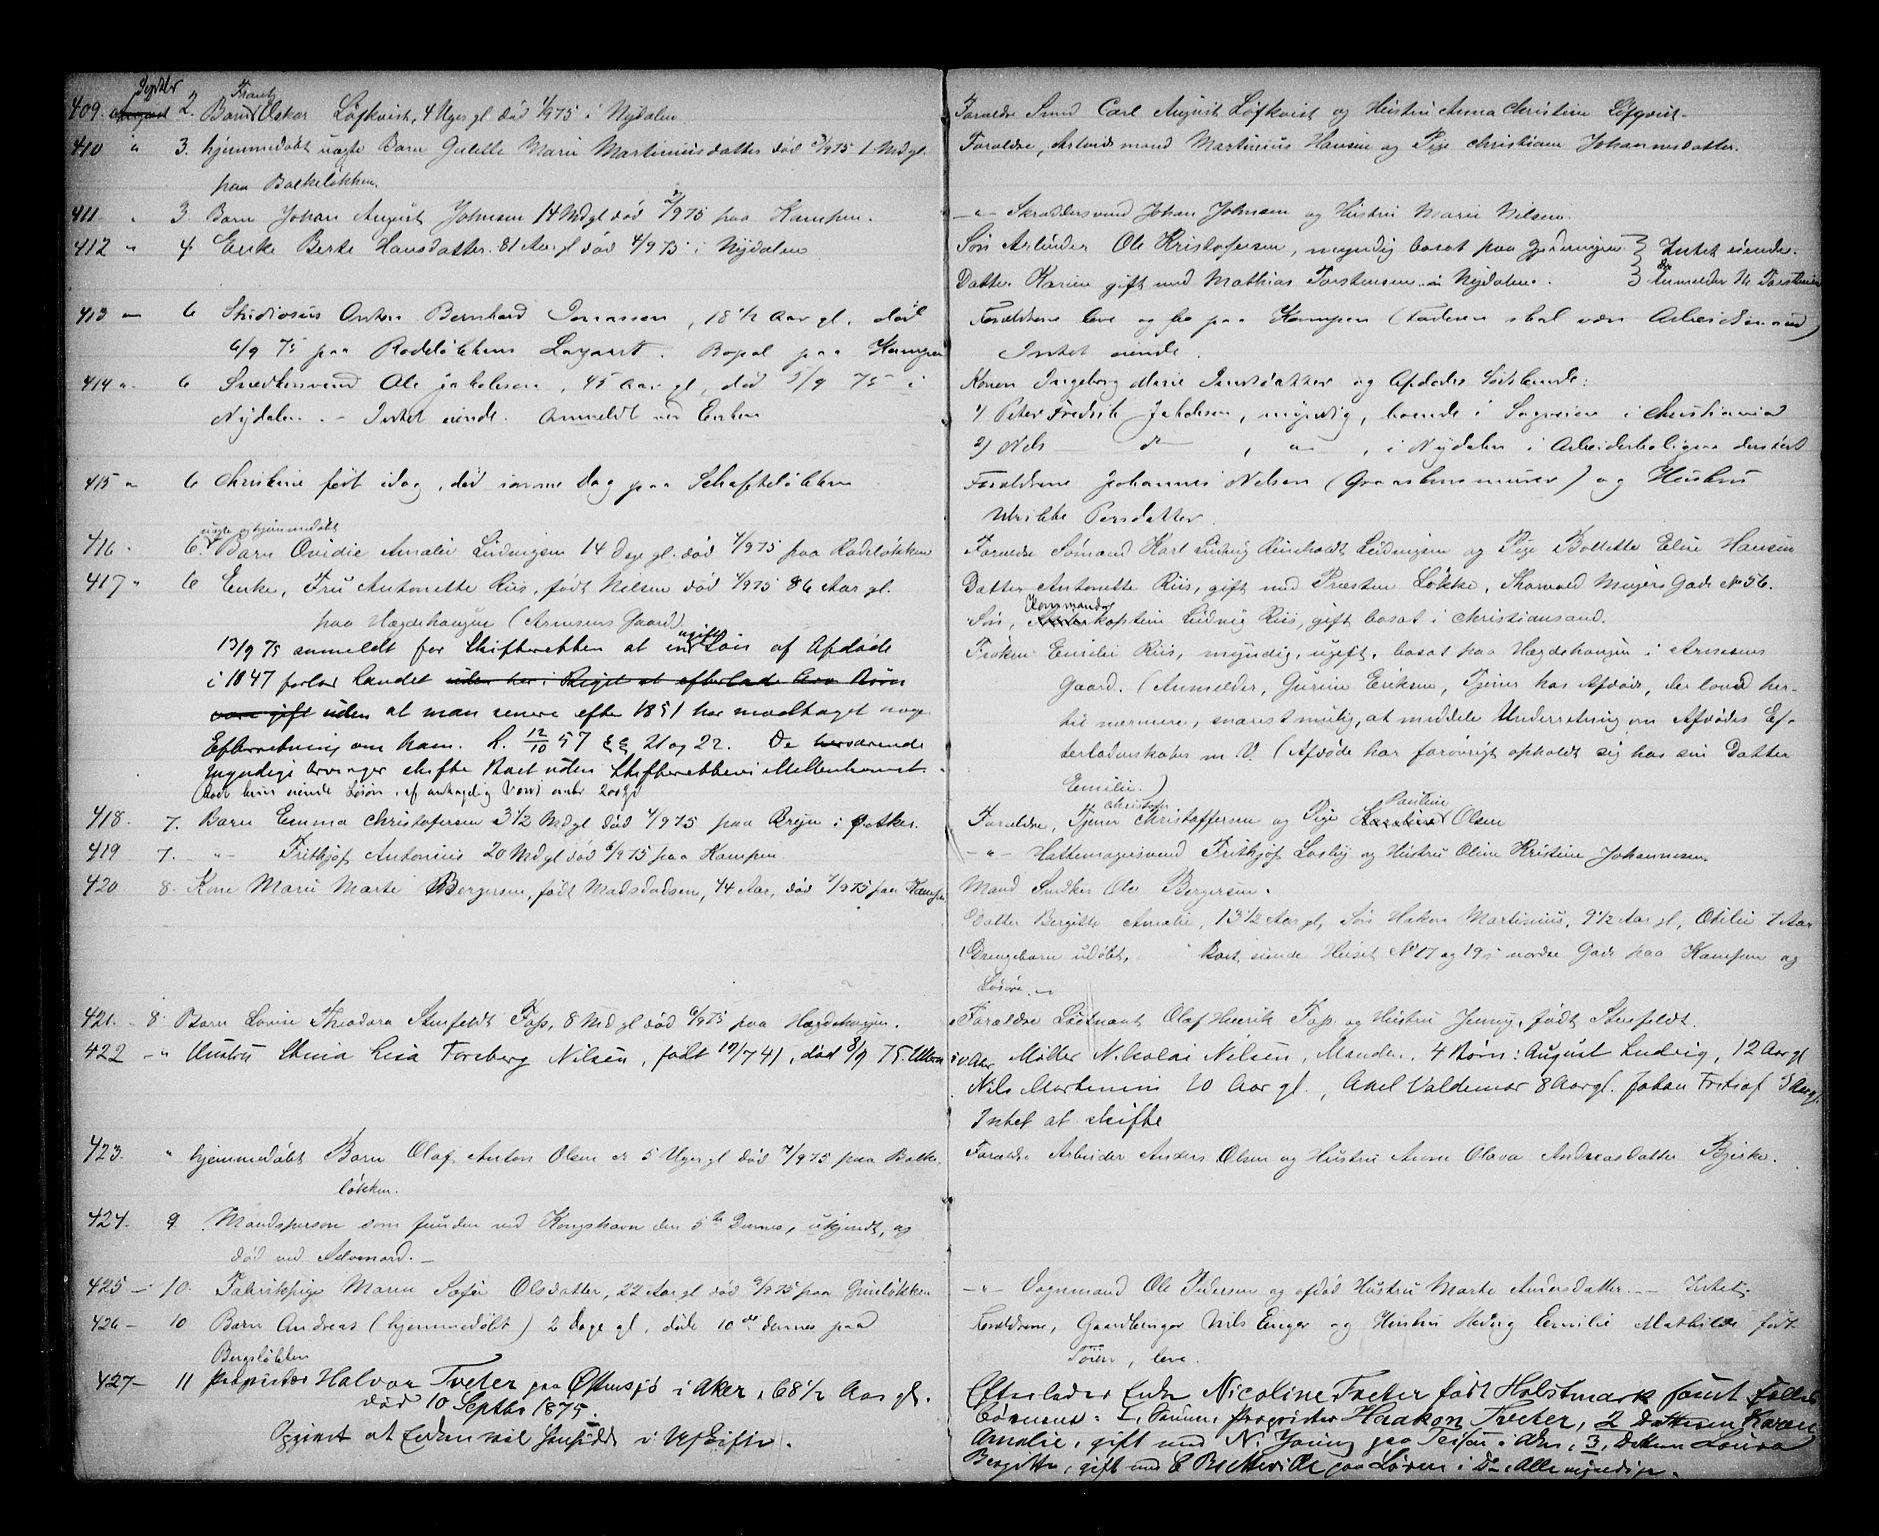 Septbr
409. August 2. Barn Frantz Oskar Løfkvist, 4 Uger gl. død 1/9 75 i Nydalen.
410 " 3. hjemmedøbt uægte Barn Gulette Marie Martiniusdatter død 3/9 75 1 Mdgl.
paa Bakkeløkken.
411 " 3 Barn Johan August Johnsen 14 Md gl død 2/9 75 paa Kampen.
412 " 4. Enke Berte Hansdatter 81 Aar gl død 4/9 75 i Nydalen
413 — 6 Studiosus Anton Bernhard Jonassen, 18 1/2 Aar gl. død
6/9 75 paa Rodeløkkens Lazaret. Bopæl paa Kampen
414 " 6 Snedkersvend Ole Jakobsen, 45 Aar gl, død 5/9 75 i
Nydalen. - Intet eiende. Anmeldt ved Enken
415 " 6 Christine født idag, død samme Dag paa Schafteløkken
uægte og hjemmedøbt
416 " 6. Barn Ovidie Amalie Ludvigsen 14 Dage gl. død 4/9 75 paa Rodeløkken
417 " 6 Enke, Fru Antonette Riis, født Nilsen død 4/9 75 86 Aar gl.
paa Hægdehaugen (Arnesens Gaard).
13/9 75 anmeldt for Skifteretten at en ugift Søn af Afdøde
i 1847 forlod Landet uden her i Riget at efterlade sig Børn
være gift uden at man senere efter 1851 har modtaget noge
Efterretning om ham. L. 12/10 57 §§ 21 og 22. De herværende
myndige Arvinger skifte Boet uden Skifterettens Mellemkomst.
418. 7. Barn Emma Christofersen 3 1/2 Mdgl død 4/9 75 paa Bryn i Østker.
419 7. —"— Frithjof Antonius 20 Mdgl død 6/9 75 paa Kampen
420 8. Kone Marie Marte Børgersen, født Madsdadsen, 44 Aar, død 7/9 75 paa Kampen
421. - 8. Barn Lovise Theodora Stenfeldt Foss, 8 Md gl død 6/9 75 paa Hægdehaugen.
422 — " Hustru Stina Lisa Forsberg Nilsen, født 19/7 41, død 8/9 75. Ullern
423. " hjemmedøbt Barn Olaf Anton Olsen er 5 Uger gl død 7/9 75 paa Bakke-
løkken.
424. 9 Mandsperson som funden ved Kongshavn den 5te Dennes, ukjendt, og
død ved Selvmord. —
425 — 10. Fabrikpige Maren Sofie Olsdatter, 22 Aar gl død 9/9 75 paa Grüneløkken
426 — 10 Barn Andreas (hjemmedøbt) 2 Dage gl, døde 10de dennes paa
Bergsløkken
427 — 11 Proprietær Halvor Tveter paa Østensjø i Aker, 68 1/2 Aar gl.
død 10 Septbr 1875.
Opgivet at Enken vil hensidde i Uskifte.
Forældre Smed Carl August Løfkvist og Hustru Anna Christine Løfqvist.
Forældre, Arbeidsmand Martinius Hansen og Pige Christiane Johannesdatter.
—"— Skræddersvend Johan Johnsen og Hustru Marie Nilsen.
Søn Arbeider Ole Kristofersen, myndig bosat paa Gjederingen } Intet eiende.
Datter Karen gift med Mathias Torstensen i Nydalen. } Anmelder M. Torstensen
Forældrene leve og bo paa Kampen (Faderen skal være Arbeidsmand)
Intet eiende.
Konen Ingeborg Marie Jensdatter og Afdødes Sødskende:
1) Peter Fredrik Jakobsen, myndig, boende i Sagveien i Christiania
2) Nels — do — , " — , i Nydalen i Arbeiderboligen dersteds
Forældrene Johannes Nelsen (Graastensmurer) og Hustru
Ulrikke Persdatter.
Forældre Sømand Karl Ludvig Reinholdt Ludvigsen og Pige Bollette Eline Hansen
Datter Antonette Riis, gift med Præsten Løkke, Thorvald Meyers Gade No 56.
Søn, Kommandørkaptein Ludvig Riis, gift bosat i Christiansand.
Frøken Emilie Riis, myndig, ugift, bosat paa Hægdehaugen i Arnesens
Gaard. (Anmelder, Gurine Eriksen, Tjener hos Afdøde, der loved her-
til nærmere, snarest mulig, at meddele Underretning om Afdødes Ef-
terladenskaber m. V. (Afdøde har forøvrigt opholdt sig hos sin Datter
Emilie.)
Forældre, Tjener Christian Christoffersen og Pige Pauline Olsen
—"— Hattemagersvend Frithjof Losby og Hustru Oline Kristine Johannesen.
Mand Snedker Ole Børgersen.
Datter Bergitte Amalie, 13 1/2 Aar gl, Søn Hakon Martinius, 9 1/2 Aar gl, Otilie 7 Aar
1 Drengebarn udøbt, Boet eiende Huset No 17 og 19 i nordre Gade paa Kampen og
Løsøre. —
Forældre Løitnant Olaf Henrik Foss og Hustru Jenny, født Stenfeldt.
i V. Aker Møller Nikolai Nilsen, Manden. 4 Børn: August Ludvig, 12 Aar gl
Nils Martinius 10 Aar gl., Axel Valdemar 8 Aar gl. Johan Fritjof 3 Aar gl.
Intet at skifte
Forældre Arbeider Anders Olsen og Hustru Anne Olava Andreasdatter Bjerke.
—"— Vognmand Ole Pedersen og afdød Hustru Marte Andersdatter. — Intet.
Forældrene, Gaardbruger Nils Enger og Hustru Hedvig Emilie Mathilde født
Tøien, leve.
Efterlader Enke Nicoline Tveter født Holstmark samt Fælles
børnene: 1, Sønnen, Proprietær Haakon Tveter, 2 Datteren Karen
Amalie, gift med N. Young paa Teisen i Aker, 3, Datteren Lovisa
Bergitte, gift med C Bretteville paa Løren i Do. Alle myndige.